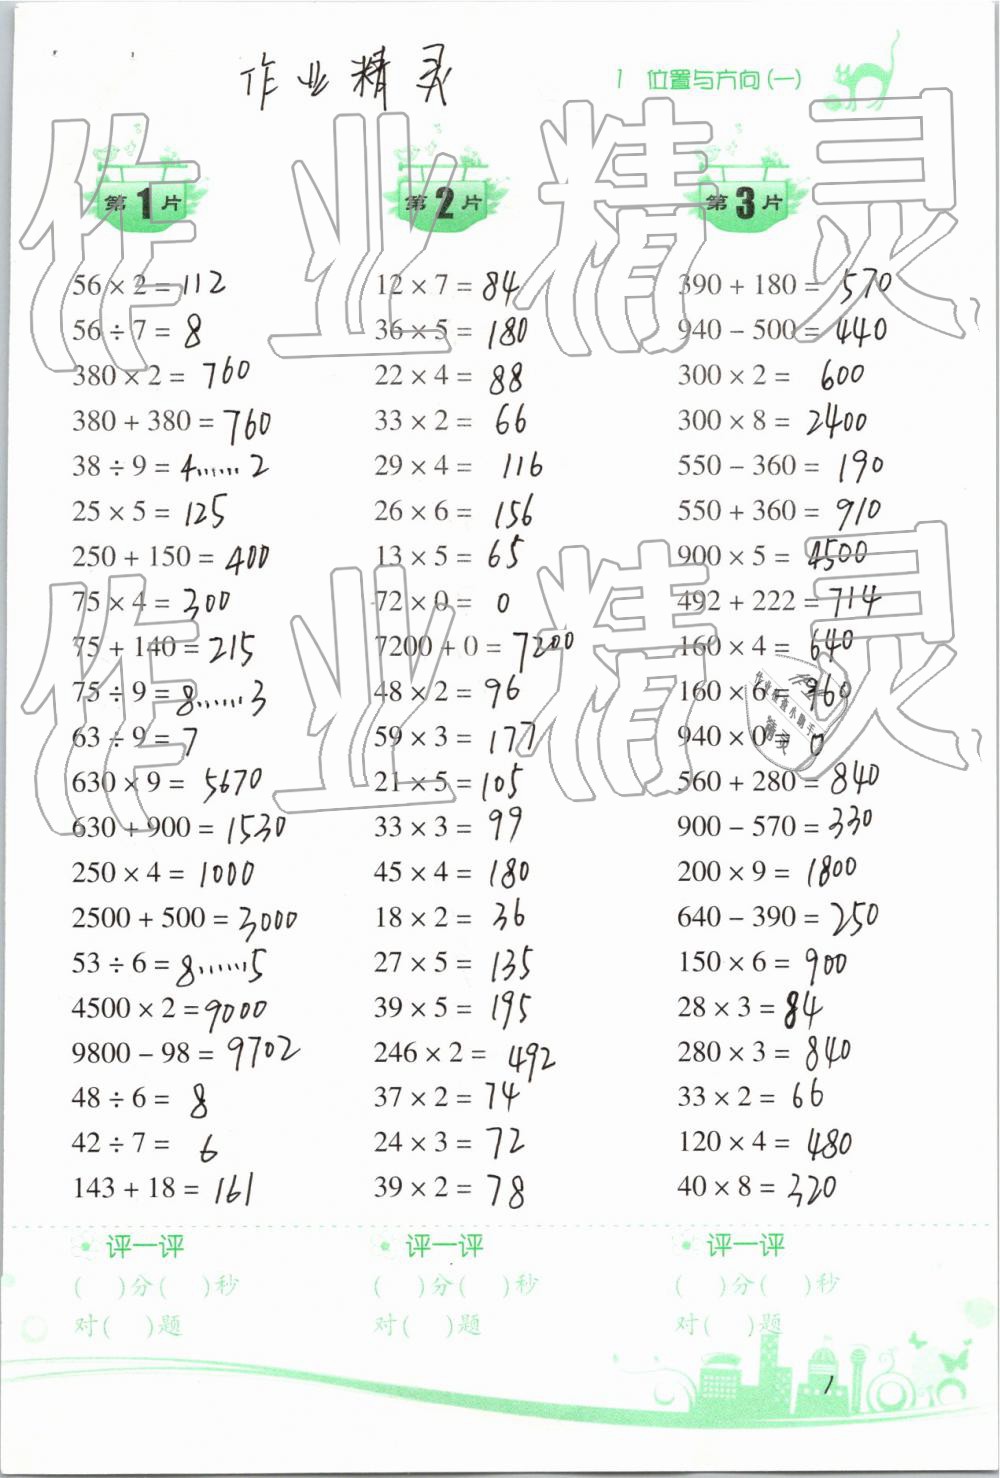 作业精灵
1 位置与方向(一)
作业精灵
第1片 第2片 第3片
56 × 2 = 112
56 ÷ 7 = 8
380 × 2 = 760
380 + 380 = 760
38 ÷ 9 = 4……2
25 × 5 = 125
250 + 150 = 400
75 × 4 = 300
75 + 140 = 215
75 ÷ 9 = 8……3
63 ÷ 9 = 7
630 × 9 = 5670
630 + 900 = 1530
250 × 4 = 1000
2500 + 500 = 3000
53 ÷ 6 = 8……5
4500 × 2 = 9000
9800 - 98 = 9702
48 ÷ 6 = 8
42 ÷ 7 = 6
143 + 18 = 161
12 × 7 = 84
36 × 5 = 180
22 × 4 = 88
33 × 2 = 66
29 × 4 = 116
26 × 6 = 156
13 × 5 = 65
72 × 0 = 0
7200 + 0 = 7200
48 × 2 = 96
59 × 3 = 177
21 × 5 = 105
33 × 3 = 99
45 × 4 = 180
18 × 2 = 36
27 × 5 = 135
39 × 5 = 195
246 × 2 = 492
37 × 2 = 74
24 × 3 = 72
39 × 2 = 78
390 + 180 = 570
940 - 500 = 440
300 × 2 = 600
300 × 8 = 2400
550 - 360 = 190
550 + 360 = 910
900 × 5 = 4500
492 + 222 = 714
160 × 4 = 640
160 × 6 = 960
940 × 0 = 0
560 + 280 = 840
900 - 570 = 330
200 × 9 = 1800
640 - 390 = 250
150 × 6 = 900
28 × 3 = 84
280 × 3 = 840
33 × 2 = 66
120 × 4 = 480
40 × 8 = 320
作业精灵
评一评 评一评 评一评
( )分( )秒 ( )分( )秒 ( )分( )秒
对( )题 对( )题 对( )题
1